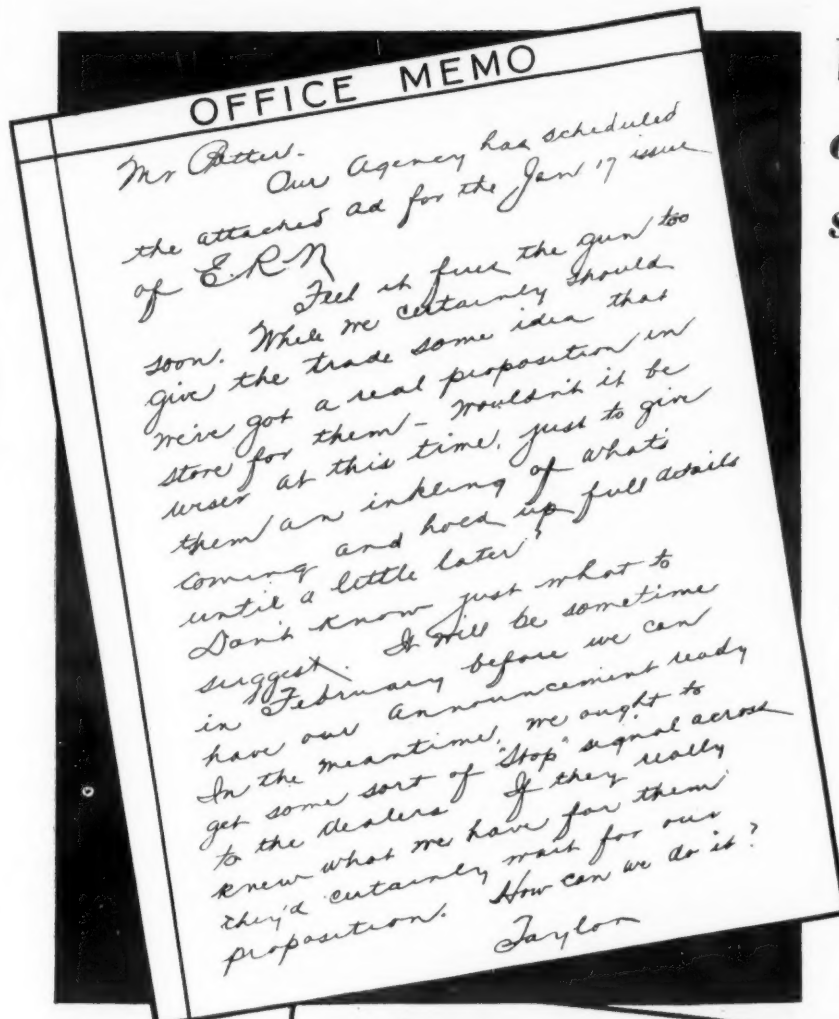 OFFICE MEMO
Mr Potter.
Our Agency has scheduled
the attached ad for the Jan 17 issue
of E.R.N
Feel it fires the gun too
soon. While we certainly should
give the trade some idea that
we've got a real proposition in
store for them – wouldn't it be
wiser at this time, just to give
them an inkling of what's
coming and hold up full details
until a little later?
Don't know just what to
suggest. It will be sometime
in February before we can
have our announcement ready
In the meantime, we ought to
get some sort of "Stop" signal across
to the dealers. If they really
knew what we have for them
they'd certainly wait for our
proposition. How can we do it?
Taylor